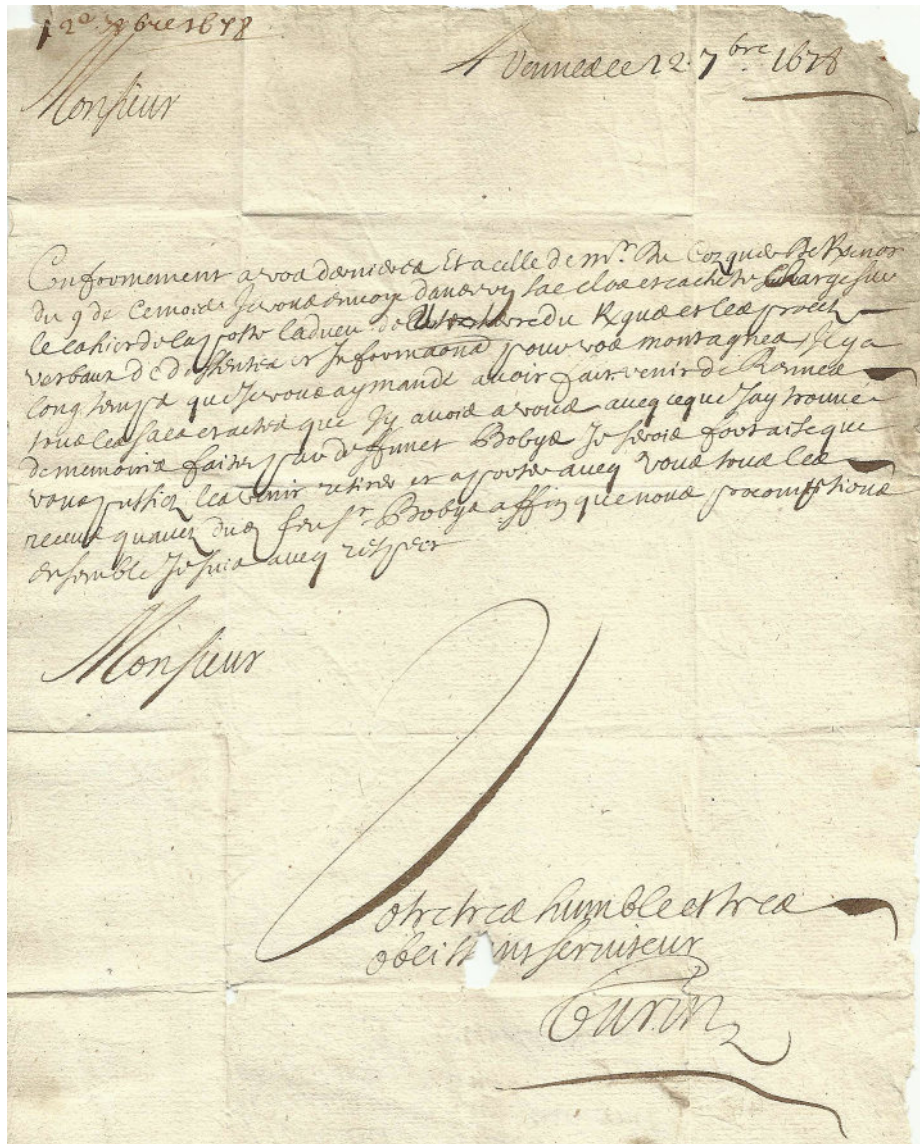 7bre 1678
A Vennes ce 12. 7bre 1678
Monsieur
Conformement a vos dernieres Et a celle de mr. De
du 9 de Ce mois Je vous envoye dans un sac clos et cachete Charge sur
le cahier de la ladveu de du et les proces
verbaux de et Informaons pour vos montagnes, Il y a
long temps que Je vous ay mandé avoir fait venir de Rennes
tous les sacs et actes que Jy avois a vous avecq ce que Jay trouué
de memoires faites par deffunct Bobys Je serois fort aise que
vous pussiez les venir retirer et aporter avecq vous tous les
receus quavez du feu sr. Bobys affin que nous
ensemble Je suis avecq respect
Monsieur
Votre tres humble et tres
obeissant serviteur
Turin